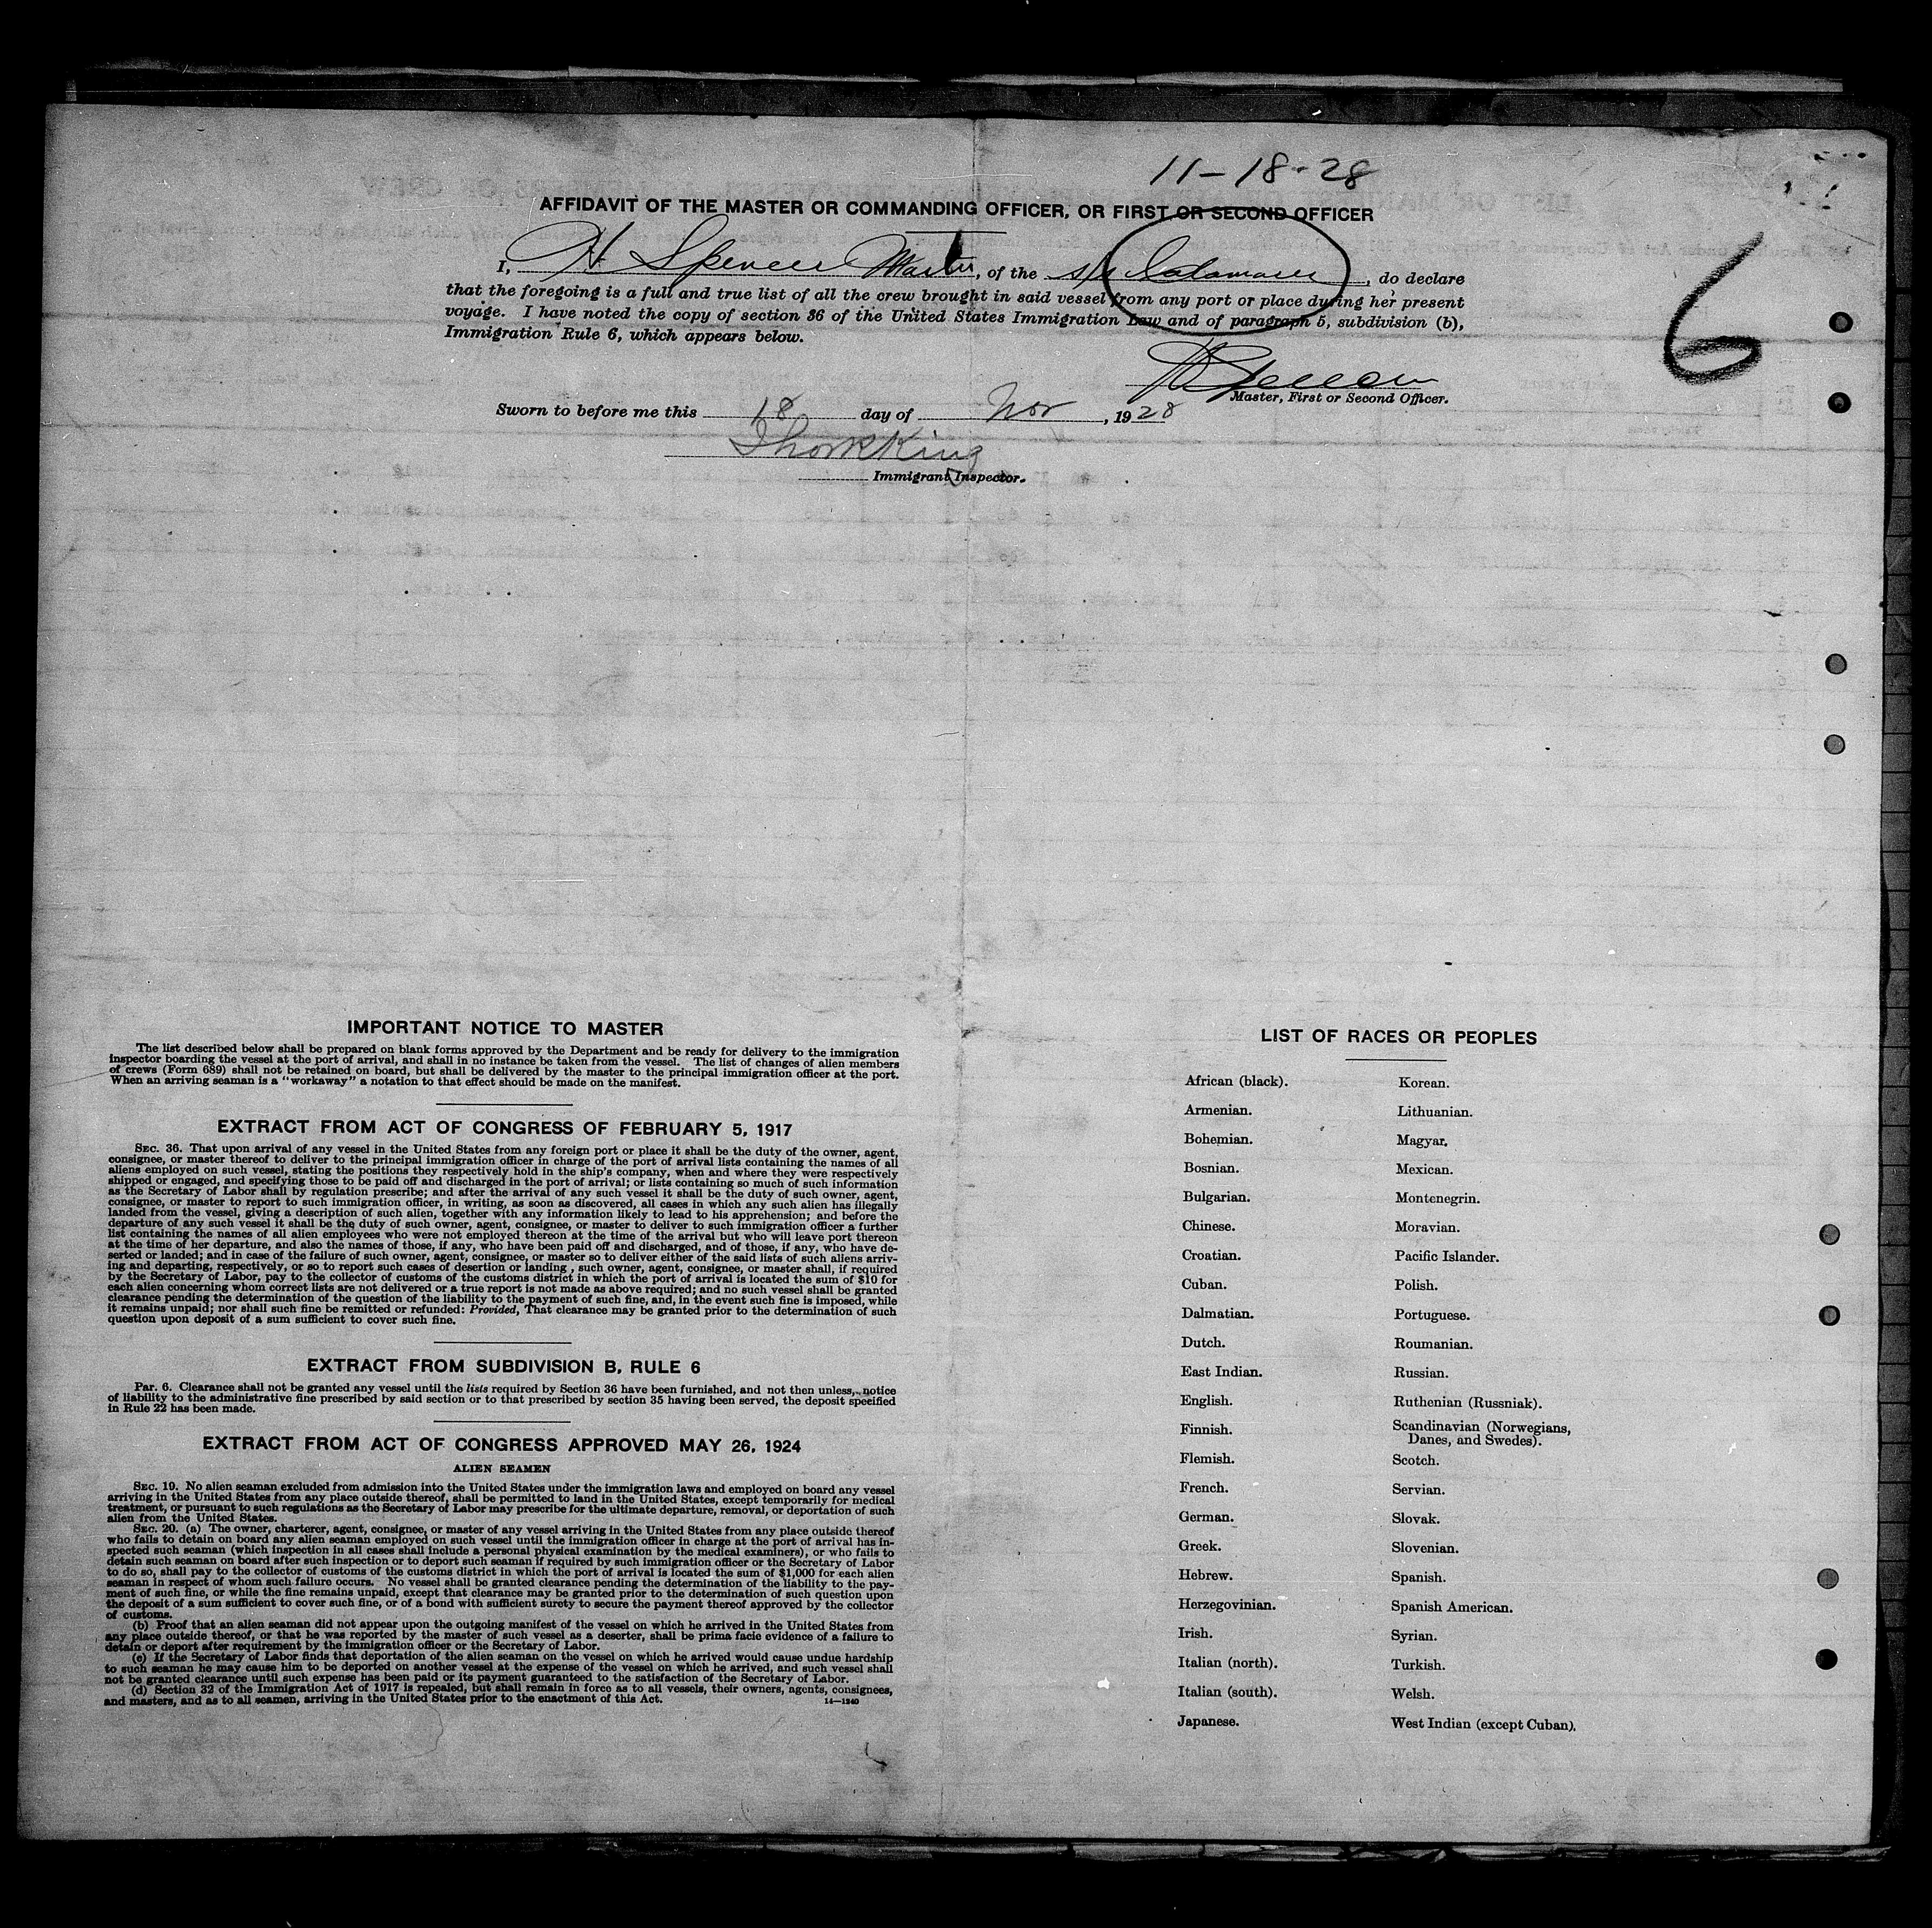 11-18-28
AFFIDAVIT OF THE MASTER OR COMMANDING OFFICER, OR FIRST OR SECOND OFFICER
I, H Spencer Master, of the s/s Calamares, do declare
that the foregoing is a full and true list of all the crew brought in said vessel from any port or place during her present
voyage. I have noted the copy of section 36 of the United States Immigration Law and of paragraph 5, subdivision (b),
Immigration Rule 6, which appears below.
6
Master, First or Second Officer.
Sworn to before me this 18 day of Nov, 1928
King
Immigrant Inspector.
IMPORTANT NOTICE TO MASTER
The list described below shall be prepared on blank forms approved by the Department and be ready for delivery to the immigration
inspector boarding the vessel at the port of arrival, and shall in no instance be taken from the vessel. The list of changes of alien members
of crews (Form 689) shall not be retained on board, but shall be delivered by the master to the principal immigration officer at the port.
When an arriving seaman is a "workaway" a notation to that effect should be made on the manifest.
EXTRACT FROM ACT OF CONGRESS OF FEBRUARY 5, 1917
SEC. 36. That upon arrival of any vessel in the United States from any foreign port or place it shall be the duty of the owner, agent,
consignee, or master thereof to deliver to the principal immigration officer in charge of the port of arrival lists containing the names of all
aliens employed on such vessel, stating the positions they respectively hold in the ship's company, when and where they were respectively
shipped or engaged, and specifying those to be paid off and discharged in the port of arrival; or lists containing so much of such information
as the Secretary of Labor shall by regulation prescribe; and after the arrival of any such vessel it shall be the duty of such owner, agent,
consignee, or master to report to such immigration officer, in writing, as soon as discovered, all cases in which any such alien has illegally
landed from the vessel, giving a description of such alien, together with any information likely to lead to his apprehension; and before the
departure of any such vessel it shall be the duty of such owner, agent, consignee, or master to deliver to such immigration officer a further
list containing the names of all alien employees who were not employed thereon at the time of the arrival but who will leave port thereon
at the time of her departure, and also the names of those, if any, who have been paid off and discharged, and of those, if any, who have de-
serted or landed; and in case of the failure of such owner, agent, consignee, or master so to deliver either of the said lists of such aliens arriv-
ing and departing, respectively, or so to report such cases of desertion or landing, such owner, agent, consignee, or master shall, if required
by the Secretary of Labor, pay to the collector of customs of the customs district in which the port of arrival is located the sum of $10 for
each alien concerning whom correct lists are not delivered or a true report is not made as above required; and no such vessel shall be granted
clearance pending the determination of the question of the liability to the payment of such fine, and, in the event such fine is imposed, while
it remains unpaid; nor shall such fine be remitted or refunded: Provided, That clearance may be granted prior to the determination of such
question upon deposit of a sum sufficient to cover such fine.
EXTRACT FROM SUBDIVISION B, RULE 6
Par. 6. Clearance shall not be granted any vessel until the lists required by Section 36 have been furnished, and not then unless, notice
of liability to the administrative fine prescribed by said section or to that prescribed by section 35 having been served, the deposit specified
in Rule 22 has been made.
EXTRACT FROM ACT OF CONGRESS APPROVED MAY 26, 1924
ALIEN SEAMEN
SEC. 19. No alien seaman excluded from admission into the United States under the immigration laws and employed on board any vessel
arriving in the United States from any place outside thereof, shall be permitted to land in the United States, except temporarily for medical
treatment, or pursuant to such regulations as the Secretary of Labor may prescribe for the ultimate departure, removal, or deportation of such
alien from the United States.
SEC. 20. (a) The owner, charterer, agent, consignee, or master of any vessel arriving in the United States from any place outside thereof
who fails to detain on board any alien seaman employed on such vessel until the immigration officer in charge at the port of arrival has in-
spected such seaman (which inspection in all cases shall include a personal physical examination by the medical examiners), or who fails to
detain such seaman on board after such inspection or to deport such seaman if required by such immigration officer or the Secretary of Labor
to do so, shall pay to the collector of customs of the customs district in which the port of arrival is located the sum of $1,000 for each alien
seaman in respect of whom such failure occurs. No vessel shall be granted clearance pending the determination of the liability to the pay-
ment of such fine, or while the fine remains unpaid, except that clearance may be granted prior to the determination of such question upon
the deposit of a sum sufficient to cover such fine, or of a bond with sufficient surety to secure the payment thereof approved by the collector
of customs.
(b) Proof that an alien seaman did not appear upon the outgoing manifest of the vessel on which he arrived in the United States from
any place outside thereof, or that he was reported by the master of such vessel as a deserter, shall be prima facie evidence of a failure to
detain or deport after requirement by the immigration officer or the Secretary of Labor.
(c) If the Secretary of Labor finds that deportation of the alien seaman on the vessel on which he arrived would cause undue hardship
to such seaman he may cause him to be deported on another vessel at the expense of the vessel on which he arrived, and such vessel shall
not be granted clearance until such expense has been paid or its payment guaranteed to the satisfaction of the Secretary of Labor.
(d) Section 32 of the Immigration Act of 1917 is repealed, but shall remain in force as to all vessels, their owners, agents, consignees,
and masters, and as to all seamen, arriving in the United States prior to the enactment of this Act.
14—1240
LIST OF RACES OR PEOPLES
African (black).
Armenian.
Bohemian.
Bosnian.
Bulgarian.
Chinese.
Croatian.
Cuban.
Dalmatian.
Dutch.
East Indian.
English.
Finnish.
Flemish.
French.
German.
Greek.
Hebrew.
Herzegovinian.
Irish.
Italian (north).
Italian (south).
Japanese.
Korean.
Lithuanian.
Magyar.
Mexican.
Montenegrin.
Moravian.
Pacific Islander.
Polish.
Portuguese.
Roumanian.
Russian.
Ruthenian (Russniak).
Scandinavian (Norwegians,
Danes, and Swedes).
Scotch.
Servian.
Slovak.
Slovenian.
Spanish.
Spanish American.
Syrian.
Turkish.
Welsh.
West Indian (except Cuban).